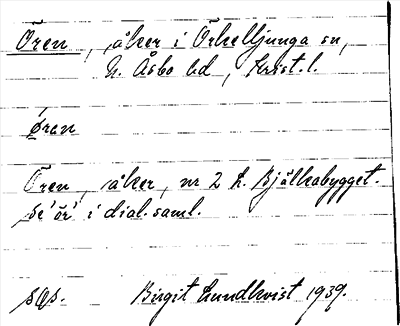 Ören, åker i Örkelljunga sn,
N. Åsbo hd, Krist. l.
ören
Ören, åker, nr 2 L. Bjälkabygget.
se 'ör' i dial. saml.
Birgit Lundkvist 1939.